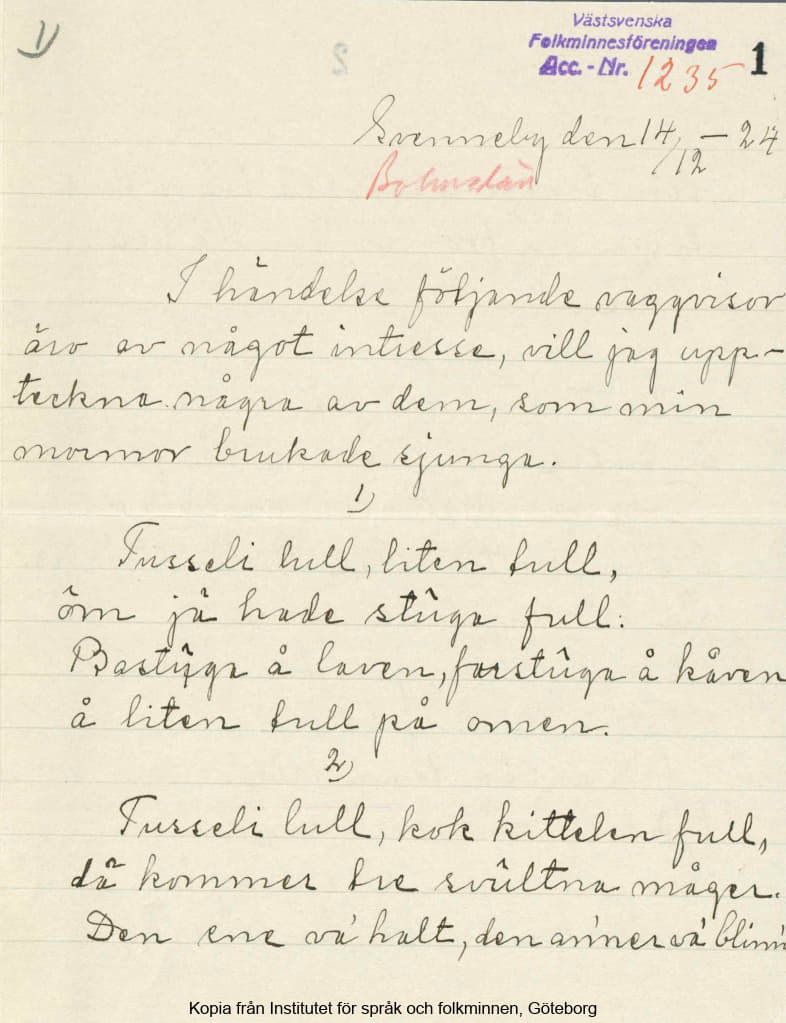 1)
Västsvenska
Folkminnesföreningen
Acc.-Nr. 1235
1
Svenneby den 14/12 – 24
Bohuslän
I händelse följande vaggvisor
äro av något intresse, vill jag upp-
teckna några av dem, som min
mormor brukade sjunga.
1)
Tusseli lull, liten tull,
öm jå hade stûga full:
Bastûga å laven, farstûga å kåven
å liten tull på omen.
2)
Tusseli lull, kok kittelen full,
då kommer tre svûltna måger.
Den ene va' halt, den an'ner va' blinn'
Kopia från Institutet för språk och folkminnen, Göteborg